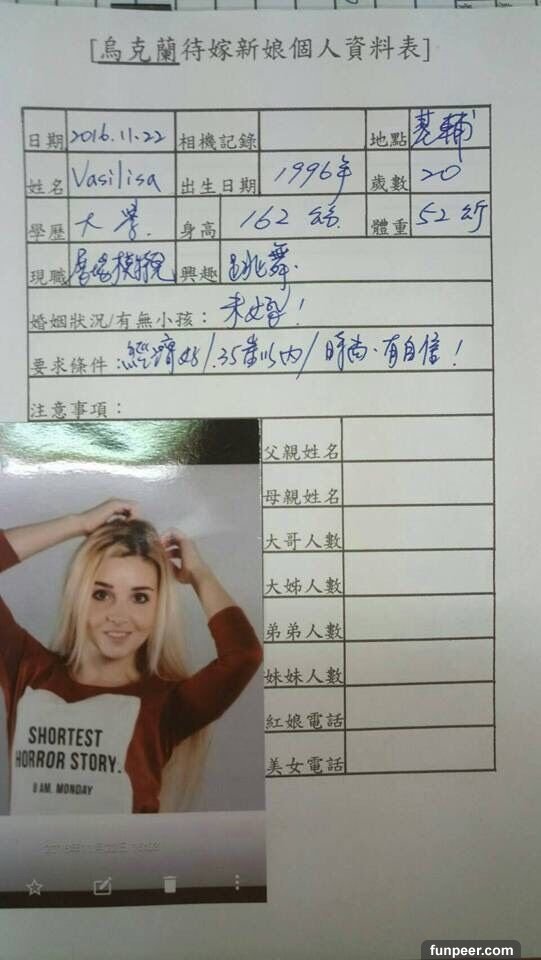 [烏克蘭待嫁新娘個人資料表]
日期 2016.11.22 相機記錄 地點 基輔
姓名 Vasilisa 出生日期 1996年 歲數 20
學歷 大學. 身高 162公分 體重 52公斤
現職 展場模特兒 興趣 跳舞.
婚姻狀況/有無小孩: 未婚!
要求條件: 經濟好/.35歲以內/時尚.有自信!
注意事項:
父親姓名
母親姓名
大哥人數
大姊人數
弟弟人數
妹妹人數
紅娘電話
美女電話
SHORTEST
HORROR STORY.
8 AM. MONDAY
funpeer.com